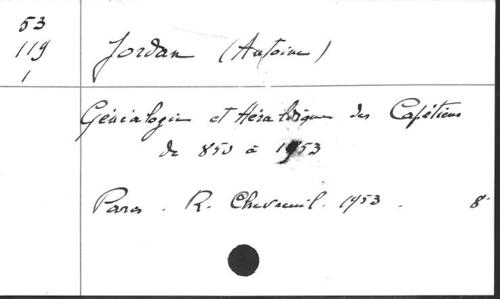 53
119
1
Jordan (Antoine)
Généalogie et Héraldique des Capétiens
de 850 à 1953
Paris. R. Chevreuil. 1953. 8°